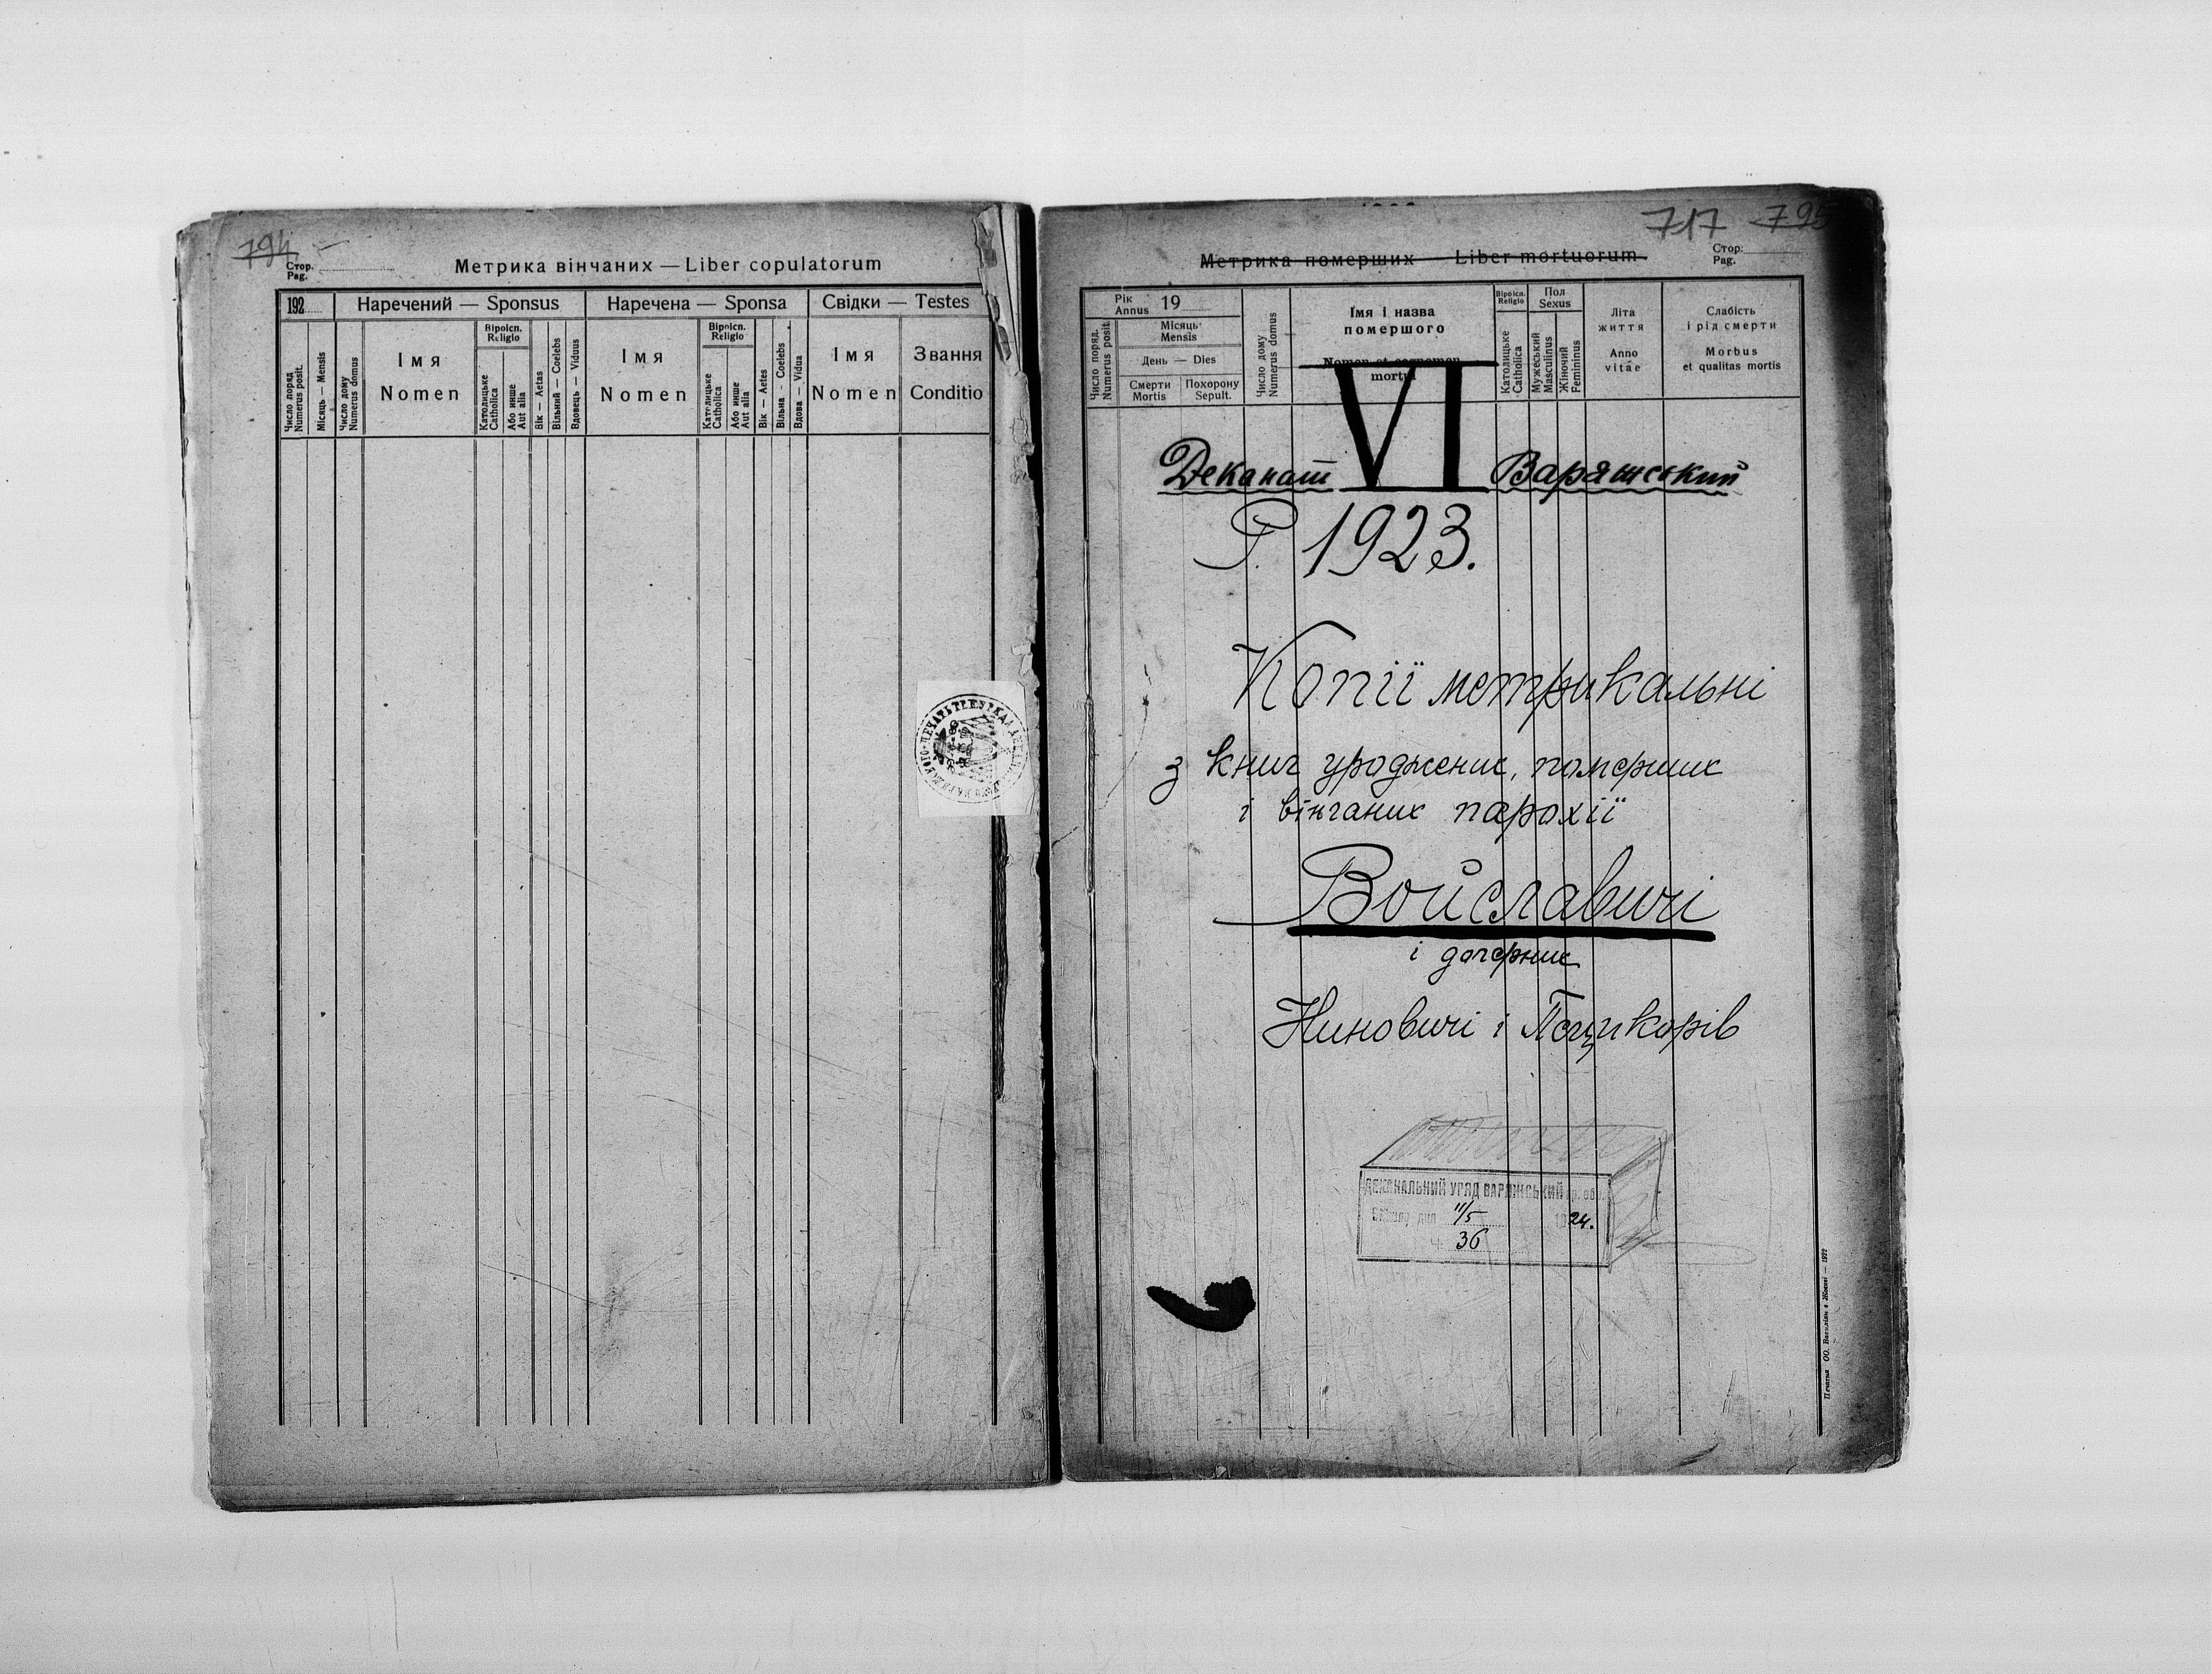 794
Стор.
Pag.
Метрика вінчаних — Liber copulatorum
192
Наречений — Sponsus
Наречена — Sponsa
Свідки — Testes
Число поряд.
Numerus posit.
Місяць — Mensis
Число дому
Numerus domus
Імя
Nomen
Віроісп.
Religio
Католицьке
Catholica
Або инше
Aut alia
Вік — Aetas
Вільний — Coelebs
Вдовець — Viduus
Імя
Nomen
Віроісп.
Religio
Католицьке
Catholica
Або инше
Aut alia
Вік — Aetes
Вільна - Coelebs
Вдова — Vidua
Імя
Nomen
Звання
Conditio
717 795
Метрика померших — Liber mortuorum
Стор.
Pag.
Рік
Annus 19
Число поряд.
Numerus posit.
Місяць
Mensis
День — Dies
Смерти
Mortis
Похорону
Sepult.
Число дому
Numerus domus
Імя і назва
помершого
Nomen et cognomen
mortui
Віроісп.
Religio
Католицьке
Catholica
Пол
Sexus
Мужеський
Masculinus
Жіночий
Femininus
Літа
життя
Anno
vitae
Слабість
і рід смерти
Morbus
et qualitas mortis
VI
Деканат Варяжський
Р. 1923.
Копії метрикальні
з книг уроджених, померших
і вінчаних парохії
Войславичі
і дочерних
Ниновичі і Псциткорів
ДЕКАНАЛЬНИЙ УРЯД ВАРЯЖСЬКИЙ гр. об.
11/5 1924.
Ч. 36
Печатня ОО. Василіян в Жовкві — 1922